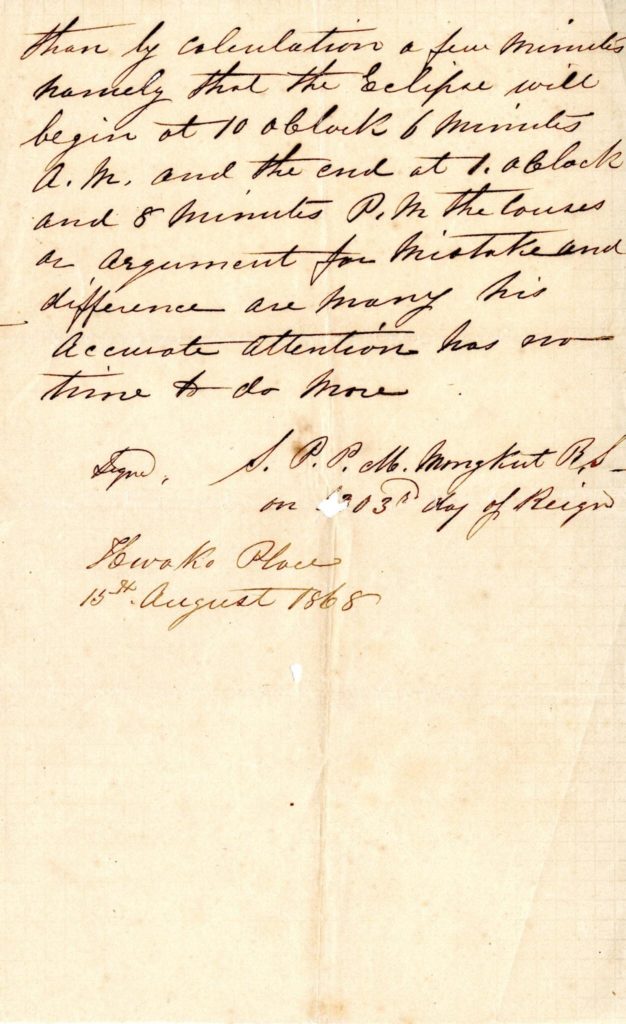 than by calculation a few minutes
namely that the Eclipse will
begin at 10 oClock 6 Minutes
A.M. and the end at 1. oClock
and 8 Minutes P.M the Causes
or argument for Mistake and
difference are many his
Accurate Attention has no
time to do More
Signed, S. P. P. M. Mongkut R.S
on 303rd day of Reign
Hwako Place
15th August 1868